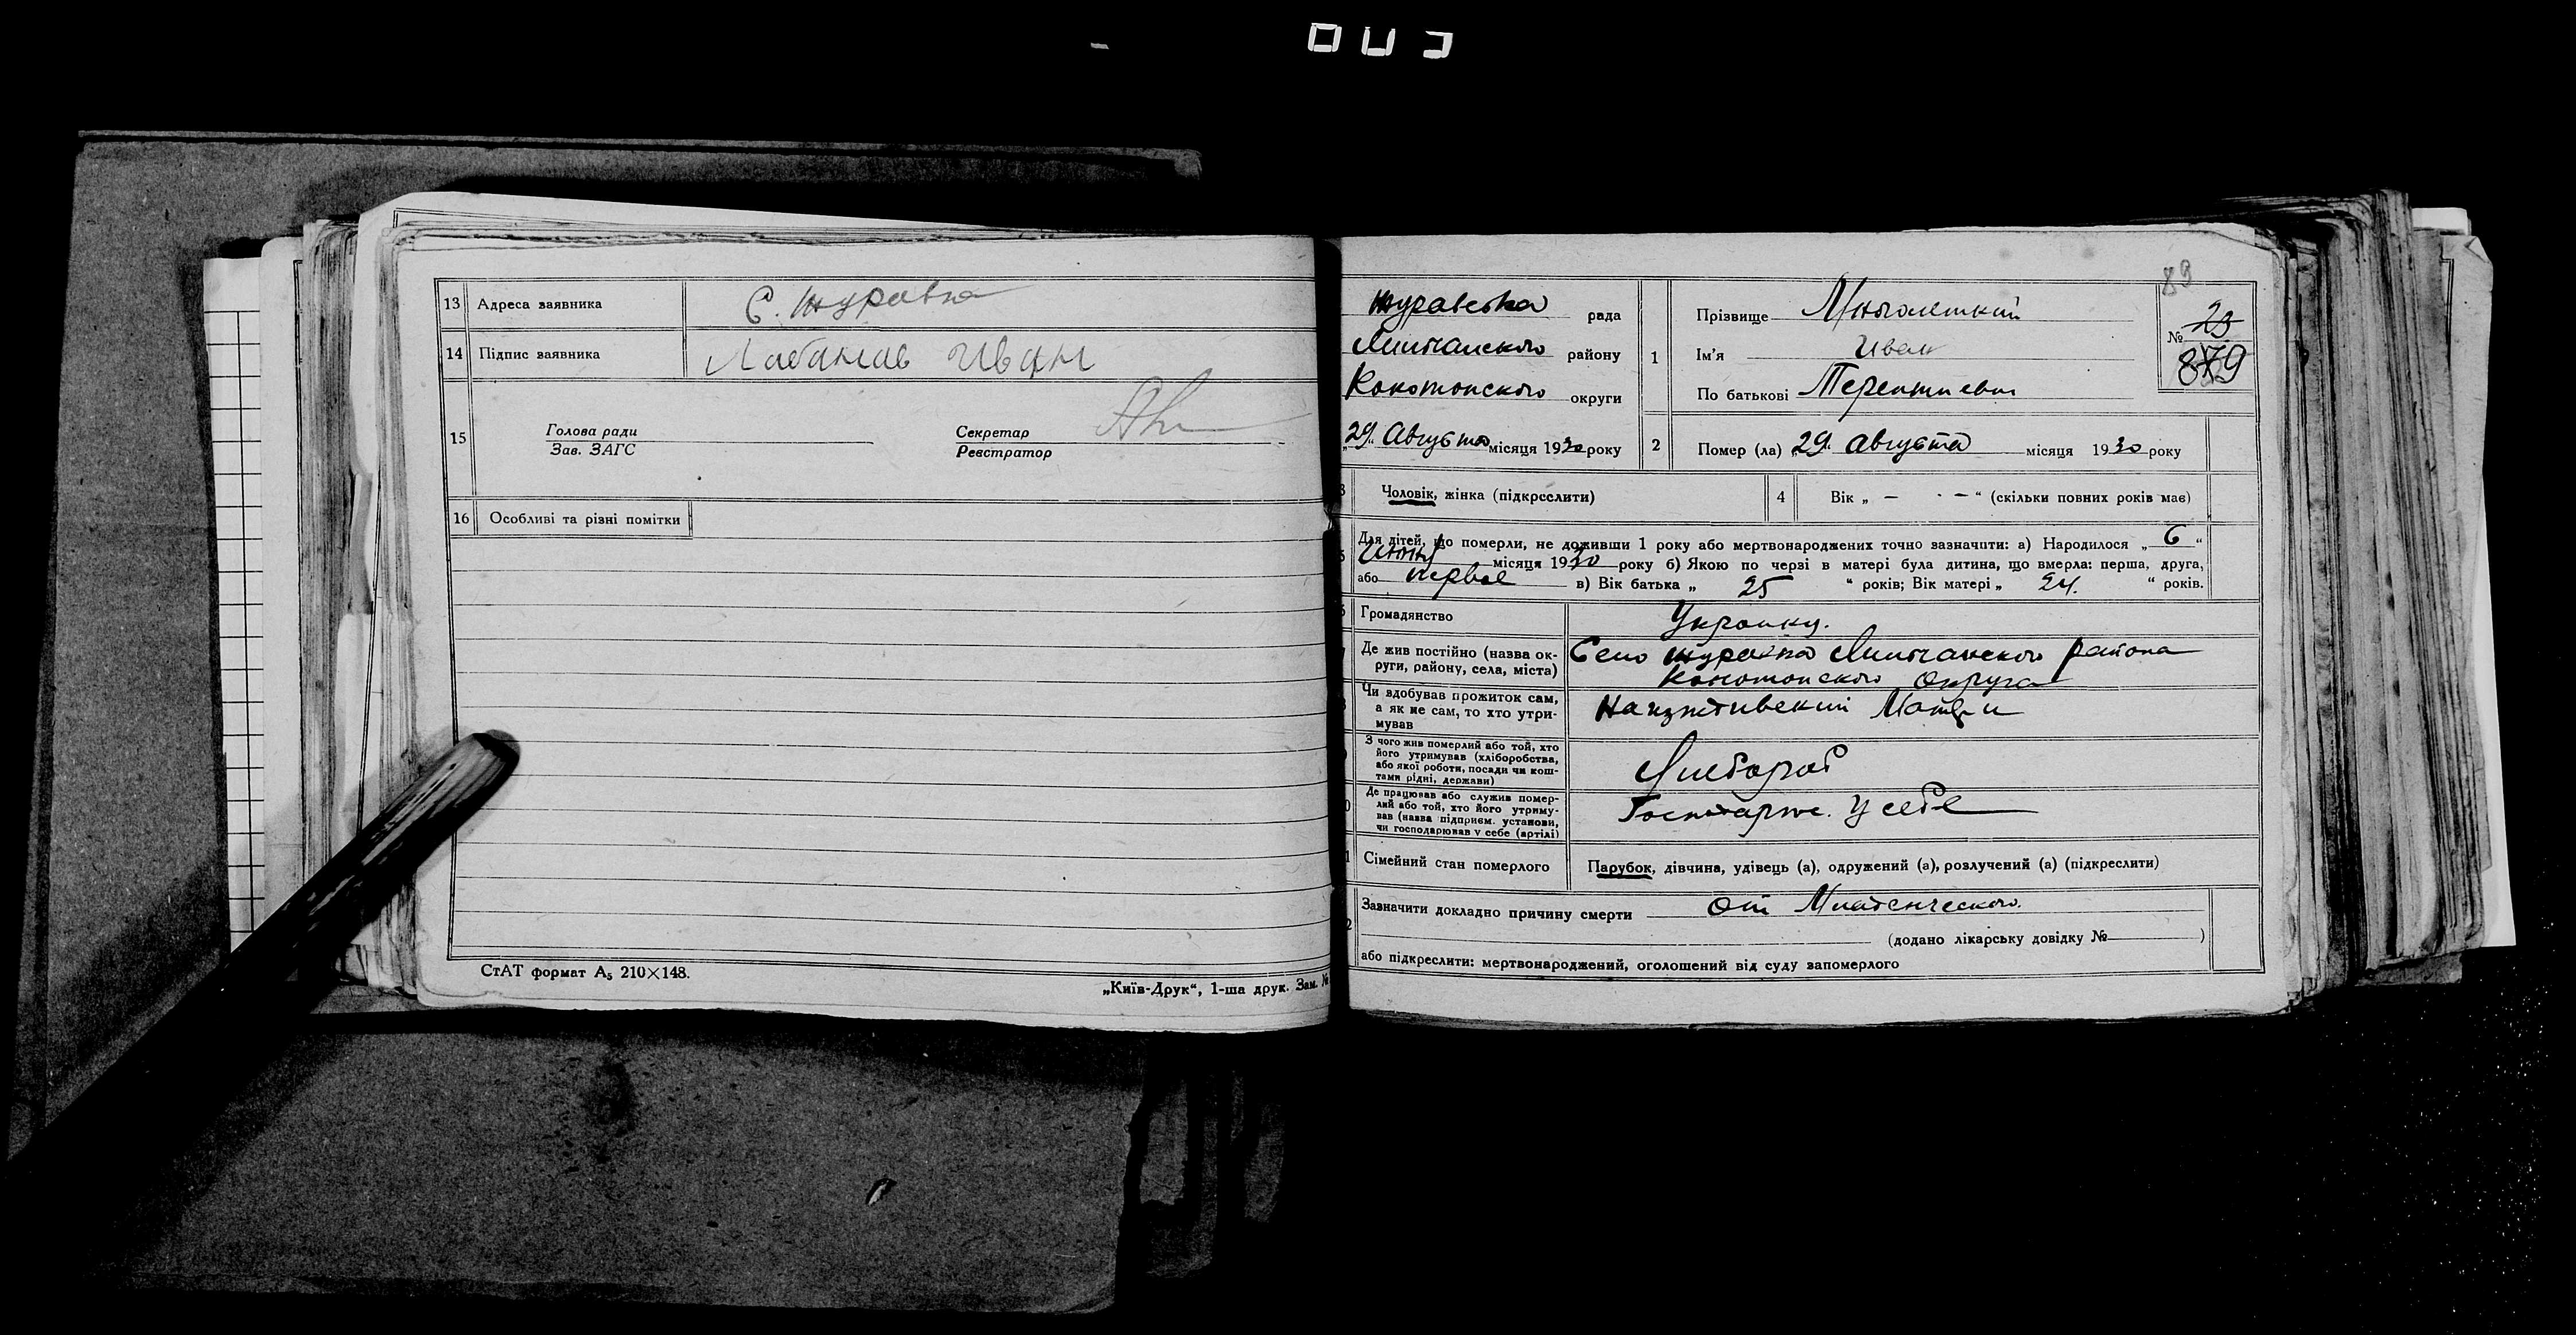 13 Адреса заявника С. Журавка
14 Підпис заявника Иван
15 Голова ради
Зав. ЗАГС
Секретар
Реєстратор
16 Особливі та різні помітки
СтАТ формат А5 210×148.
„Київ-Друк“, 1-ша друк. Зам. №
89
Журавска рада
району
Конотопского округи
„29“ Августа місяця 1930 року
1 Прізвище Многолеткий
Ім’я Иван
По батькові Терентиевич
№ 23
879
2 Помер (ла) „29“ Августа місяця 1930 року
3 Чоловік, жінка (підкреслити)
4 Вік „ — · — “ (скільки повних років має)
Для дітей, що померли, не доживши 1 року або мертвонароджених точно зазначити: а) Народилося „ 6 “
Июня місяця 1930 року б) Якою по черзі в матері була дитина, що вмерла: перша, друга,
або первое в) Вік батька „ 25 “ років; Вік матері „ 24. “ років.
Громадянство
Де жив постійно (назва ок-
руги, району, села, міста)
Село Журавка района
Конотопского Округа
Чи вдобував прожиток сам,
а як не сам, то хто утри-
мував
Матери
З чого жив померлий або той, хто
його утримував (хліборобства,
або якої роботи, посади чи кош-
тами рідні, держави)
Де працював або служив помер-
лий або той, хто його утриму-
вав (назва підприєм. установи,
чи господарював у себе (артілі)
у себе
Сімейний стан померлого Парубок, дівчина, удівець (а), одружений (а), розлучений (а) (підкреслити)
Зазначити докладно причину смерти От Младенческого.
(додано лікарську довідку № )
або підкреслити: мертвонароджений, оголошений від суду запомерлого